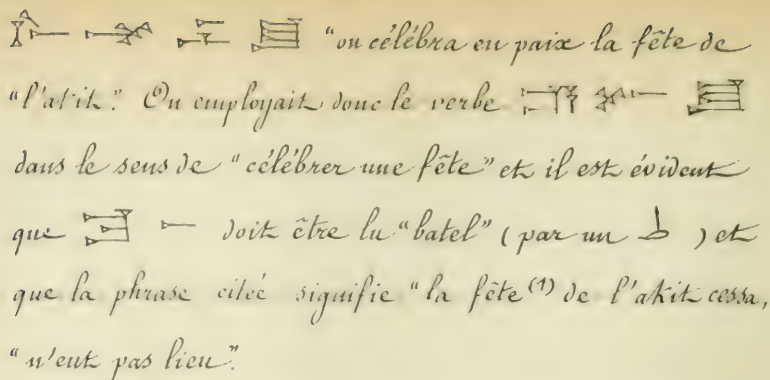 "on célébra en paix la fête de
"l'akit." On employait donc le verbe
dans le sens de "célébrer une fête" et il est évident
que doit être lu "batel" (par un ط ) et
que la phrase citée signifie "la fête (1) de l'akit cessa,
"n'eut pas lieu".